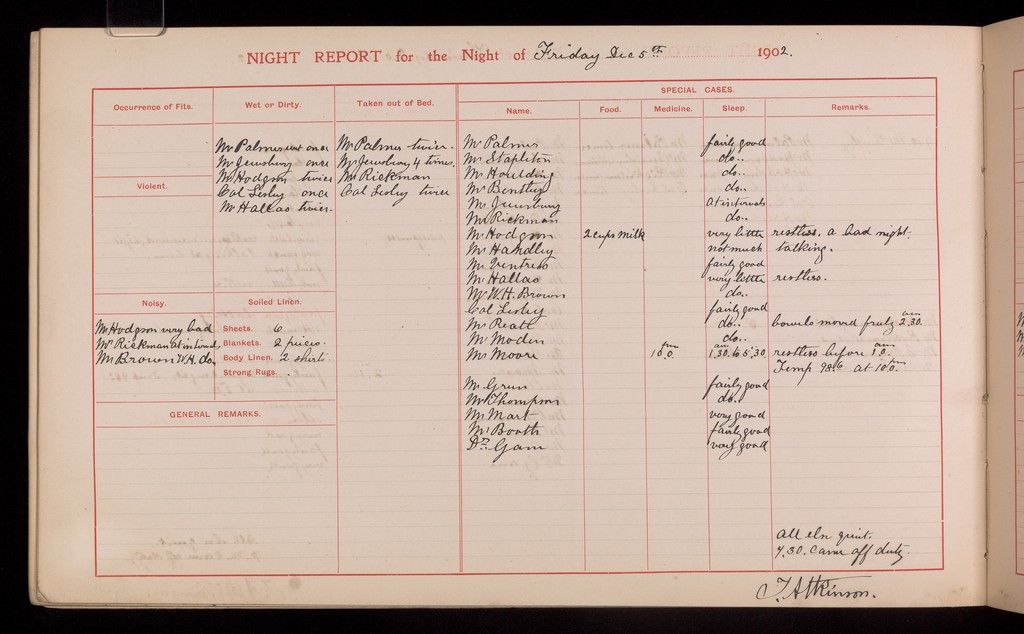 NIGHT REPORT for the Night of Friday Dec 5th 1902.
Occurrence of Fits.
Wet or Dirty.
Mr Palmer wet once
Mr Jewsbury once
Mr Hodgson twice
Col Lesley once
Mr Hallas twice.
Taken out of Bed.
Mr Palmer twice.
Mr Jewsbury 4 times.
Mr Rickman
Col Lesley twice
Violent.
Noisy.
Mr Hodgson very bad
Mr Rickman at intervals
Mr Brown W.H. do.
Soiled Linen.
Sheets. 6
Blankets. 2 pieces.
Body Linen. 2 shirts
Strong Rugs.
GENERAL REMARKS.
SPECIAL CASES.
Name. Food. Medicine. Sleep. Remarks.
Mr Palmer fairly good
Mr Stapleton do..
Mr Houlding do..
Mr Bentley do..
Mr Jewsbury at intervals
Mr Rickman do..
Mr Hodgson 2 cups milk very little restless, a bad night.
Mr Handley not much talking.
Mr Ventress fairly good
Mr Hallas very little restless.
Mr W.H. Brown do..
Col Lesley fairly good
Mr do.. bowels moved freely 2.30. am
Mr do..
Mr Moore 10.0. pm 1.30. to 5.30. am restless before 1.0. am
Temp 98.6 at 10.0. pm
Mr fairly good
Mr Thompson do..
Mr Mart very good
Mr Booth fairly good
Dr. Gam very good
All else quiet.
7.30. came off duty.
T. Atkinson.